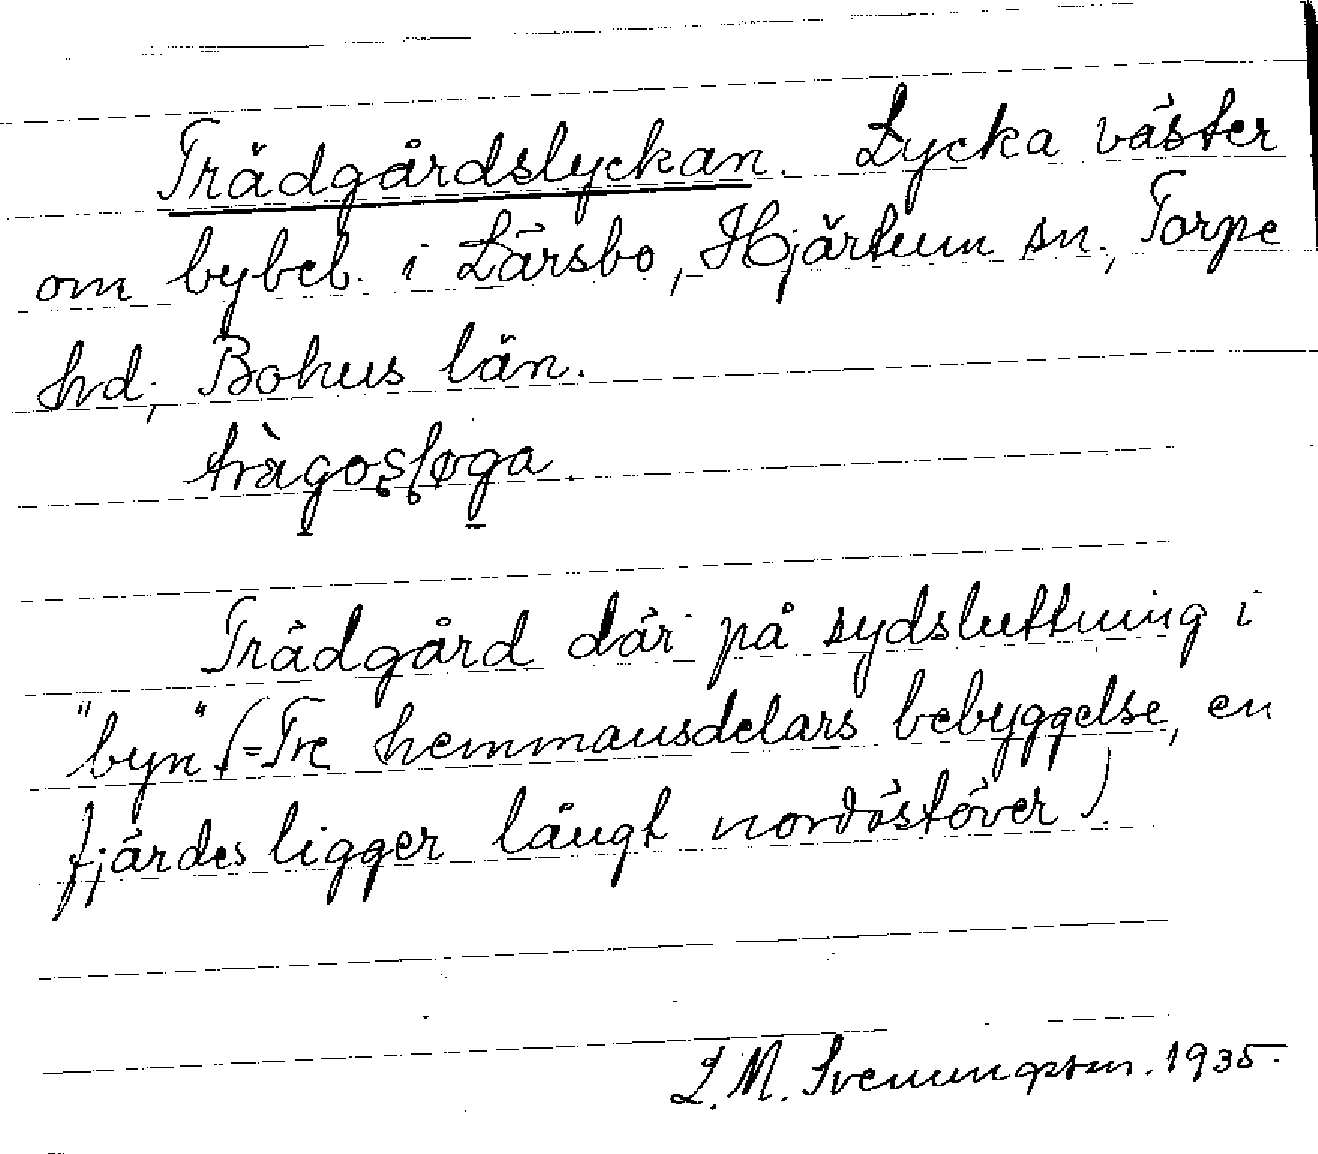 Trädgårdslyckan. Lycka väster
om bybeb. i Lärsbo, Hjärtum sn., Torpe
hd., Bohus län.
Trädgård där på sydsluttning i
"byn" (=Tre hemmansdelars bebyggelse, en
fjärdes ligger långt nordöstöver).
L. M. Svenungsson. 1935.